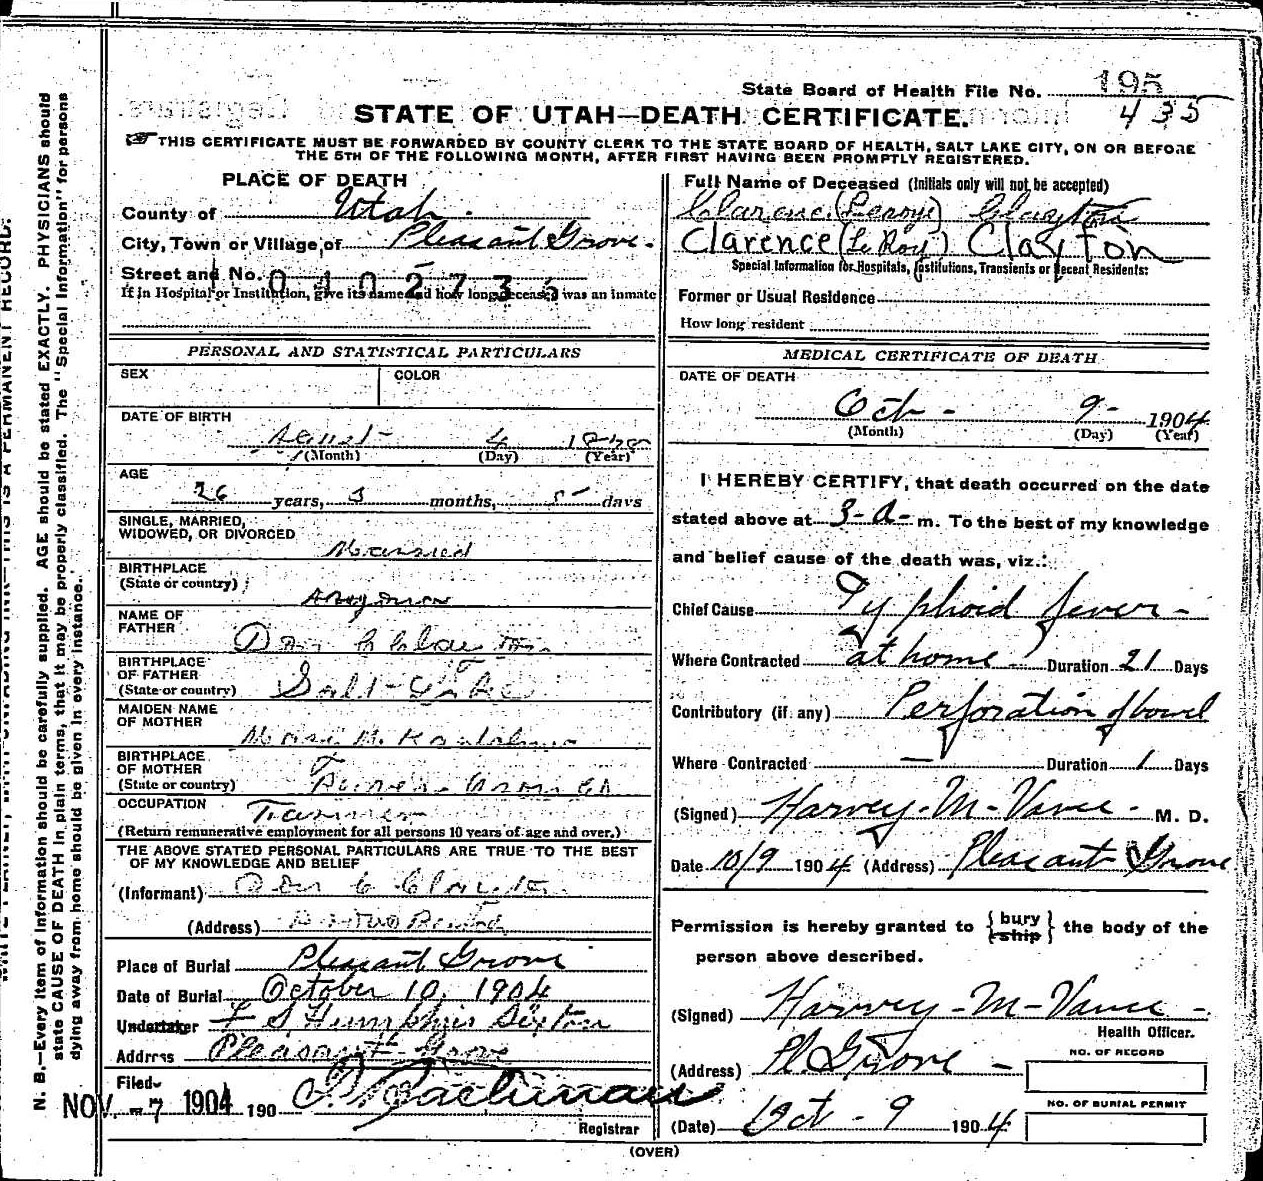 State Board of Health File No. 195
435
STATE OF UTAH—DEATH CERTIFICATE.
THIS CERTIFICATE MUST BE FORWARDED BY COUNTY CLERK TO THE STATE BOARD OF HEALTH, SALT LAKE CITY, ON OR BEFORE
THE 5TH OF THE FOLLOWING MONTH, AFTER FIRST HAVING BEEN PROMPTLY REGISTERED.
PLACE OF DEATH
County of Utah.
City, Town or Village of Pleasant Grove.
Street and No.
If in Hospital or Institution, give its name and how long deceased was an inmate
PERSONAL AND STATISTICAL PARTICULARS
SEX COLOR
DATE OF BIRTH
4
(Month) (Day) (Year)
AGE
26 years, 3 months, 5 days
SINGLE, MARRIED,
WIDOWED, OR DIVORCED
Married
BIRTHPLACE
(State or country)
NAME OF
FATHER
Clayton
BIRTHPLACE
OF FATHER
(State or country) Salt Lake
MAIDEN NAME
OF MOTHER
BIRTHPLACE
OF MOTHER
(State or country)
OCCUPATION Farmer
(Return remunerative employment for all persons 10 years of age and over.)
THE ABOVE STATED PERSONAL PARTICULARS ARE TRUE TO THE BEST
OF MY KNOWLEDGE AND BELIEF
(Informant) C Clayton
(Address)
Place of Burial Pleasant Grove
Date of Burial October 10, 1904
Undertaker F S Humphries Sexton
Address Pleasant Grove
Filed
NOV. -7 1904 190
Registrar
Full Name of Deceased (Initials only will not be accepted)
Clarence (Leroy) Clayton
Clarence (Le Roy) Clayton
Special Information for Hospitals, Institutions, Transients or Recent Residents:
Former or Usual Residence
How long resident
MEDICAL CERTIFICATE OF DEATH
DATE OF DEATH
Oct - 9 - 1904
(Month) (Day) (Year)
I HEREBY CERTIFY, that death occurred on the date
stated above at 3-A-m. To the best of my knowledge
and belief cause of the death was, viz.:
Chief Cause Typhoid fever -
Where Contracted at home - Duration 21 Days
Contributory (if any) Perforation of bowel
Where Contracted — Duration 1 Days
(Signed) Harvey - M - Vance - M. D.
Date 10/9 1904 (Address) Pleasant Grove
Permission is hereby granted to {bury ship} the body of the
person above described.
(Signed) Harvey - M - Vance -
Health Officer.
(Address) Pl. Grove - NO. OF RECORD
NO. OF BURIAL PERMIT
(Date) Oct - 9 1904
(OVER)
N. B.—Every item of information should be carefully supplied. AGE should be stated EXACTLY. PHYSICIANS should
state CAUSE OF DEATH in plain terms, that it may be properly classified. The "Special Information" for persons
dying away from home should be given in every instance.